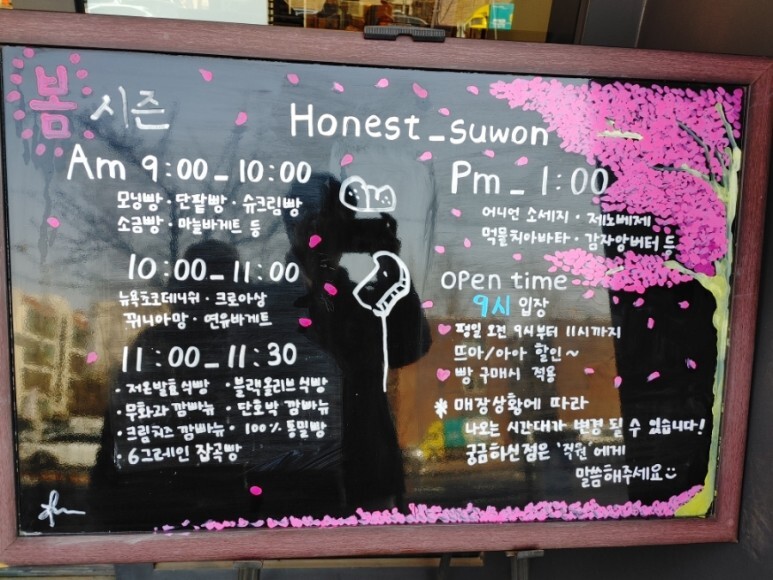 봄 시즌
Honest_suwon
Am 9:00_10:00
모닝빵·단팥빵·슈크림빵
소금빵·마늘바게트 등
10:00_11:00
뉴욕초코데니쉬·크로아상
퀴니아망·연유바게트
11:00_11:30
·저온발효식빵 ·블랙올리브식빵
·무화과 깜빠뉴 ·단호박 깜빠뉴
·크림치즈 깜빠뉴 ·100% 통밀빵
·6그레인 잡곡빵
Pm_1:00
어니언 소세지·제노베제
먹물치아바타·감자앙버터 등
open time
9시 입장
평일 오전 9시부터 11시까지
뜨아/아아 할인~
빵 구매시 적용
* 매장상황에 따라
나오는 시간대가 변경 될 수 있습니다!
궁금하신점은 '직원'에게
말씀해주세요